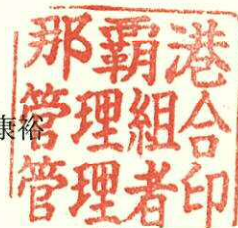 康裕
那覇港
管理組合
管理者印